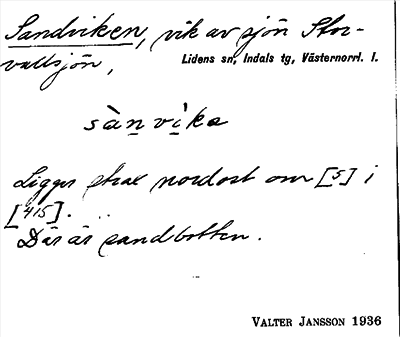 Sandviken, vik av sjön Stor-
vallsjön, Lidens sn, Indals tg, Västernorrl. l.
sàn vìka
Ligger strax nordost om [5] i
[415].
Där är sandbotten.
VALTER JANSSON 1936